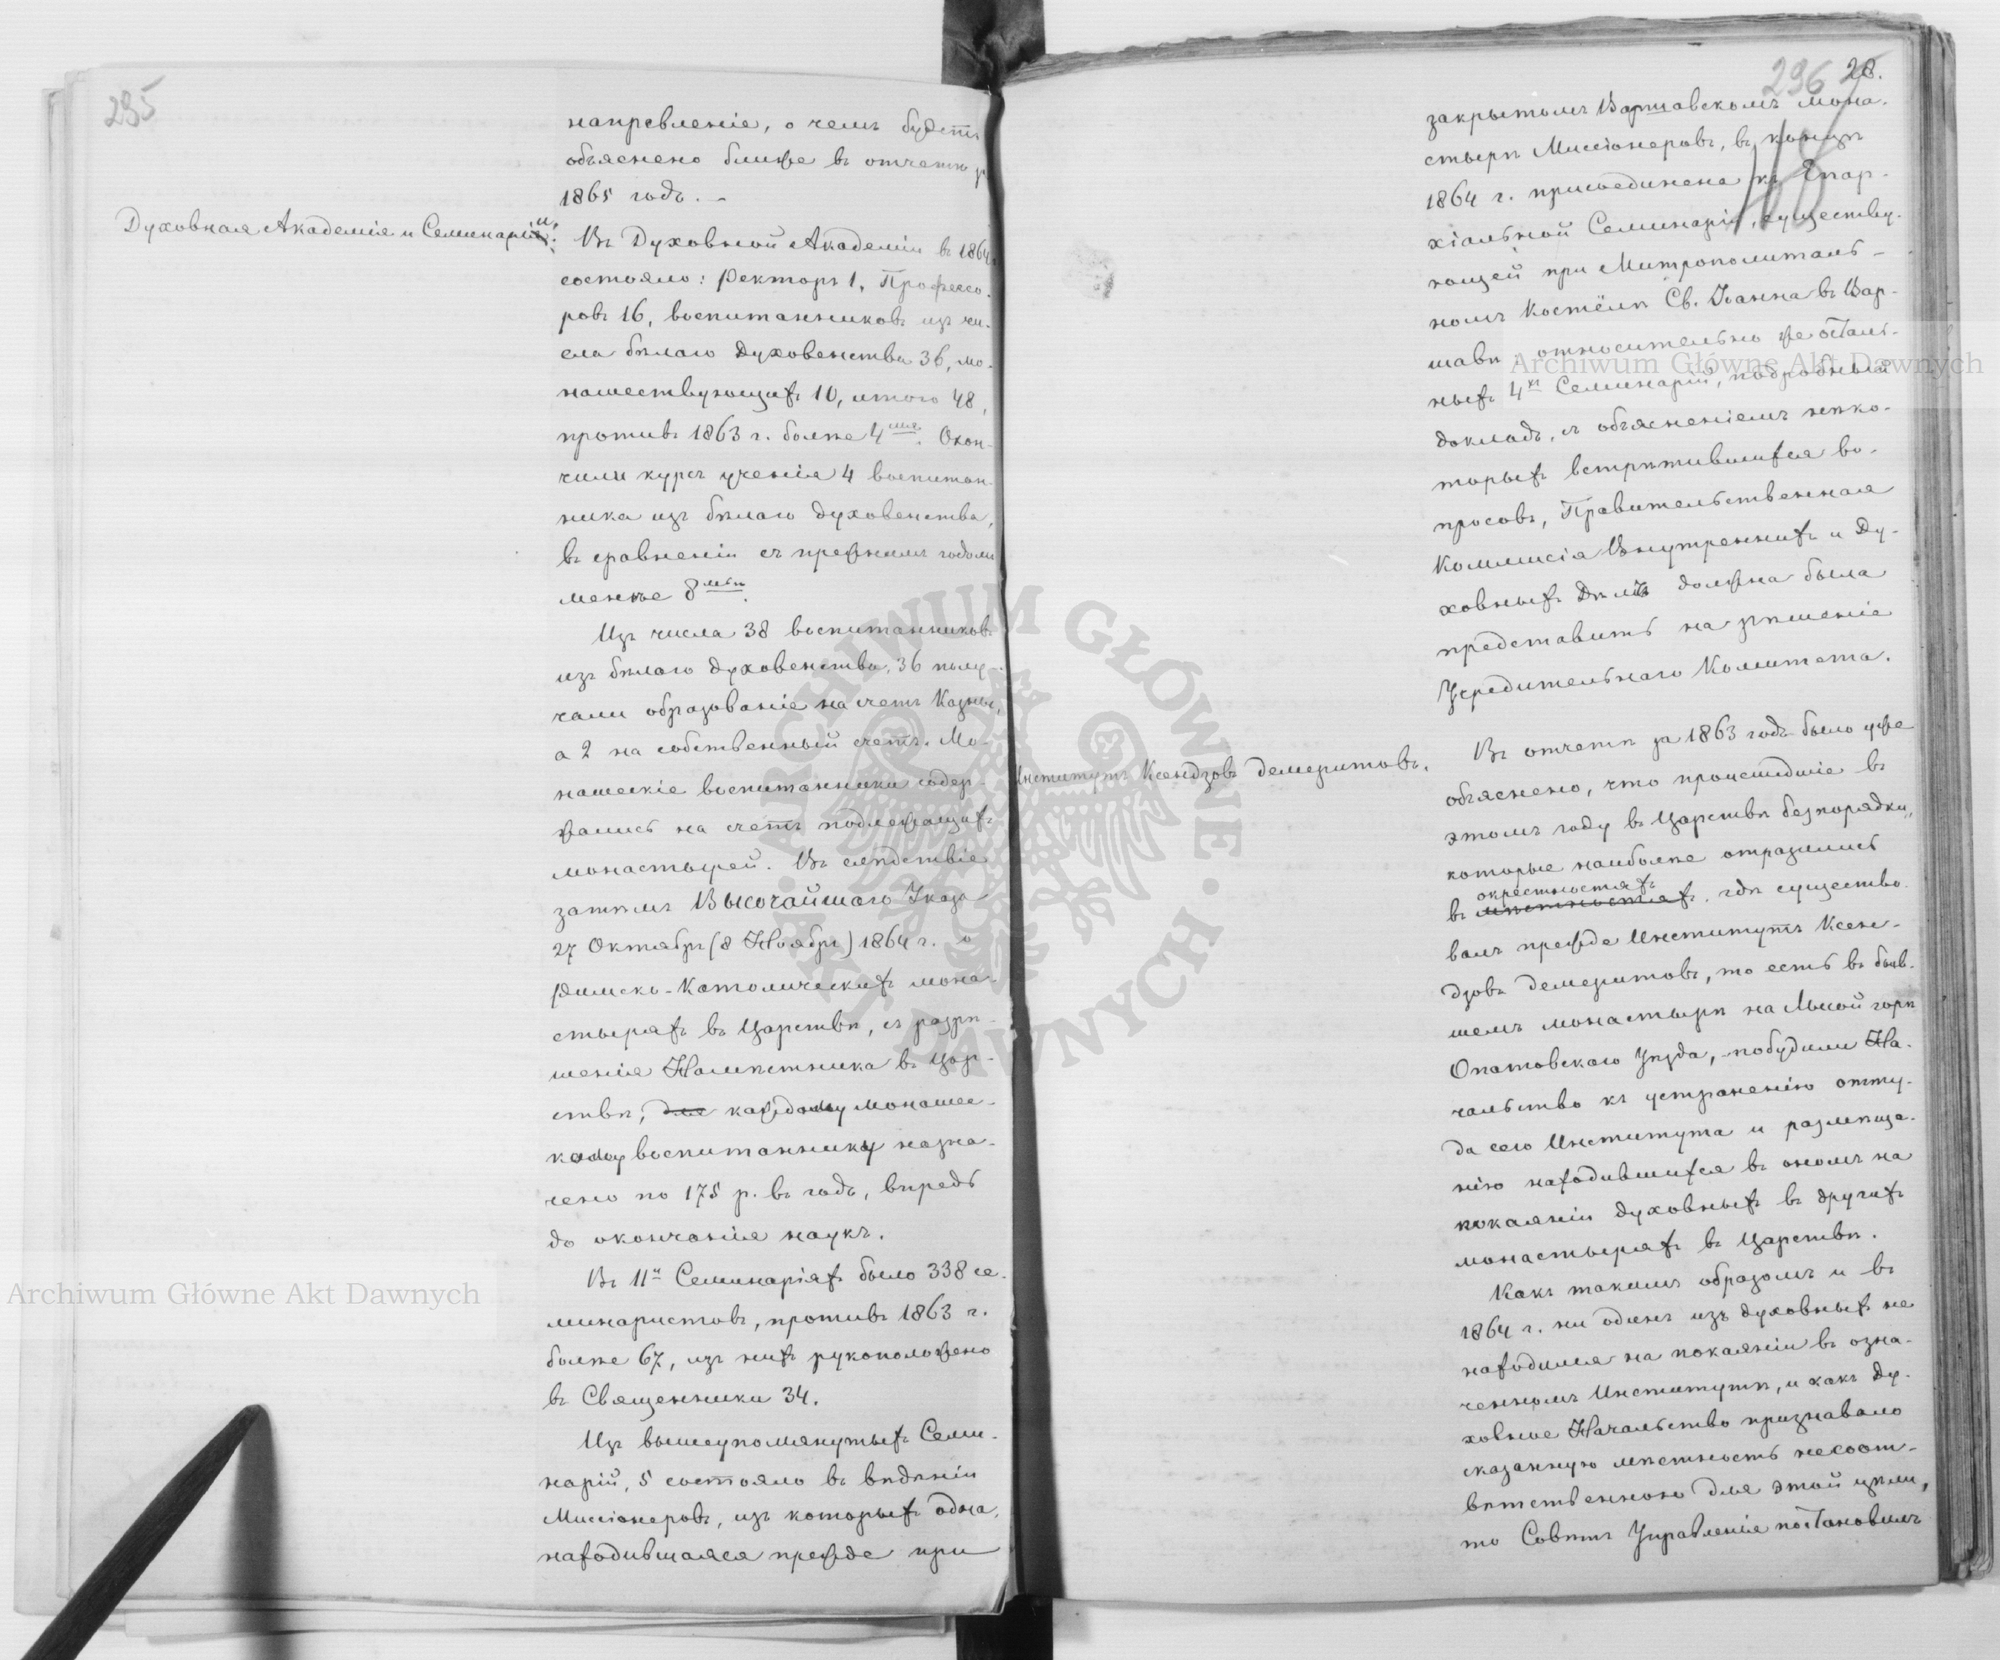 295
направленіе, о чемъ будетъ
объяснено ближе въ отчетѣ за
1865 годъ. –
Духовная Академія и Семинаріи:
Въ Духовной Академіи въ 1864 г.
состояло: Ректоръ 1, Профессо-
ровъ 16, воспитанниковъ изъ чи-
сла бѣлаго духовенства 36, мо-
нашествующихъ 10, итого 48,
противъ 1863 г. болѣе 4мя. Окон-
чили курсъ ученія 4 воспитан-
ника изъ бѣлаго духовенства,
въ сравненіи съ прежнимъ годомъ
менѣе 8мью.
Изъ числа 38 воспитанниковъ
изъ бѣлаго духовенства, 36 полу-
чали образованіе на счетъ Казны,
а 2 на собственный счетъ. Мо-
нашескіе воспитанники содер-
жались на счетъ подлежащихъ
монастырей. Въ слѣдствіе
затѣмъ Высочайшаго Указа
27 Октября (8 Ноября) 1864 г. о
Римско-Католическихъ мона-
стыряхъ въ Царствѣ, съ разрѣ-
шенія Намѣстника въ Цар-
ствѣ, для каждому монашес-
кому воспитаннику назна-
чено по 175 р. въ годъ, впредь
до окончанія наукъ.
Въ 11и Семинаріяхъ было 338 се-
минаристовъ, противъ 1863 г.
болѣе 67, изъ нихъ рукоположено
въ Священники 34.
Изъ вышеупомянутыхъ Семи-
нарій, 5 состояло въ вѣдѣніи
Миссіонеровъ, изъ которыхъ одна,
находившаяся прежде при
296 28.
закрытомъ Варшавскомъ мона-
стырѣ Миссіонеровъ, въ концѣ
1864 г. присоединена къ Епар-
хіальной Семинаріи, существу-
ющей при Митрополиталь-
номъ Костёлѣ Св. Іоанна въ Вар-
шавѣ, относительно же осталь-
ныхъ 4хъ Семинарій, подробный
докладъ, съ объясненіемъ нѣко-
торыхъ встрѣтившихся во-
просовъ, Правительственная
Коммисія Внутреннихъ и Ду-
ховныхъ Дѣлъ должна была
представить на рѣшеніе
Учредительнаго Комитета.
Институтъ Ксендзовъ демеритовъ.
Въ отчетѣ за 1863 годъ было уже
объяснено, что происшедшіе въ
этомъ году въ Царствѣ безпорядки,
которые наиболѣе отразились
окрестностяхъ
въ мѣстностяхъ, гдѣ существо-
валъ прежде Институтъ Ксен-
дзовъ демеритовъ, то есть въ быв-
шемъ монастырѣ на Лысой горѣ
Опатовскаго Уѣзда, побудили На-
чальство къ устраненію отту-
да сего Института и размѣще-
нію находившихся въ ономъ на
покаяніи духовныхъ въ другихъ
монастыряхъ въ Царствѣ.
Какъ такимъ образомъ и въ
1864 г. ни одинъ изъ духовныхъ не
находился на покаяніи въ озна-
ченномъ Институтѣ, и какъ Ду-
ховное Начальство признавало
сказанную мѣстность несоот-
вѣтственною для этой цѣли,
то Совѣтъ Управленія постановилъ
Archiwum Główne Akt Dawnych
Archiwum Główne Akt Dawnych
ARCHIWUM GŁÓWNE · AKT DAWNYCH ·